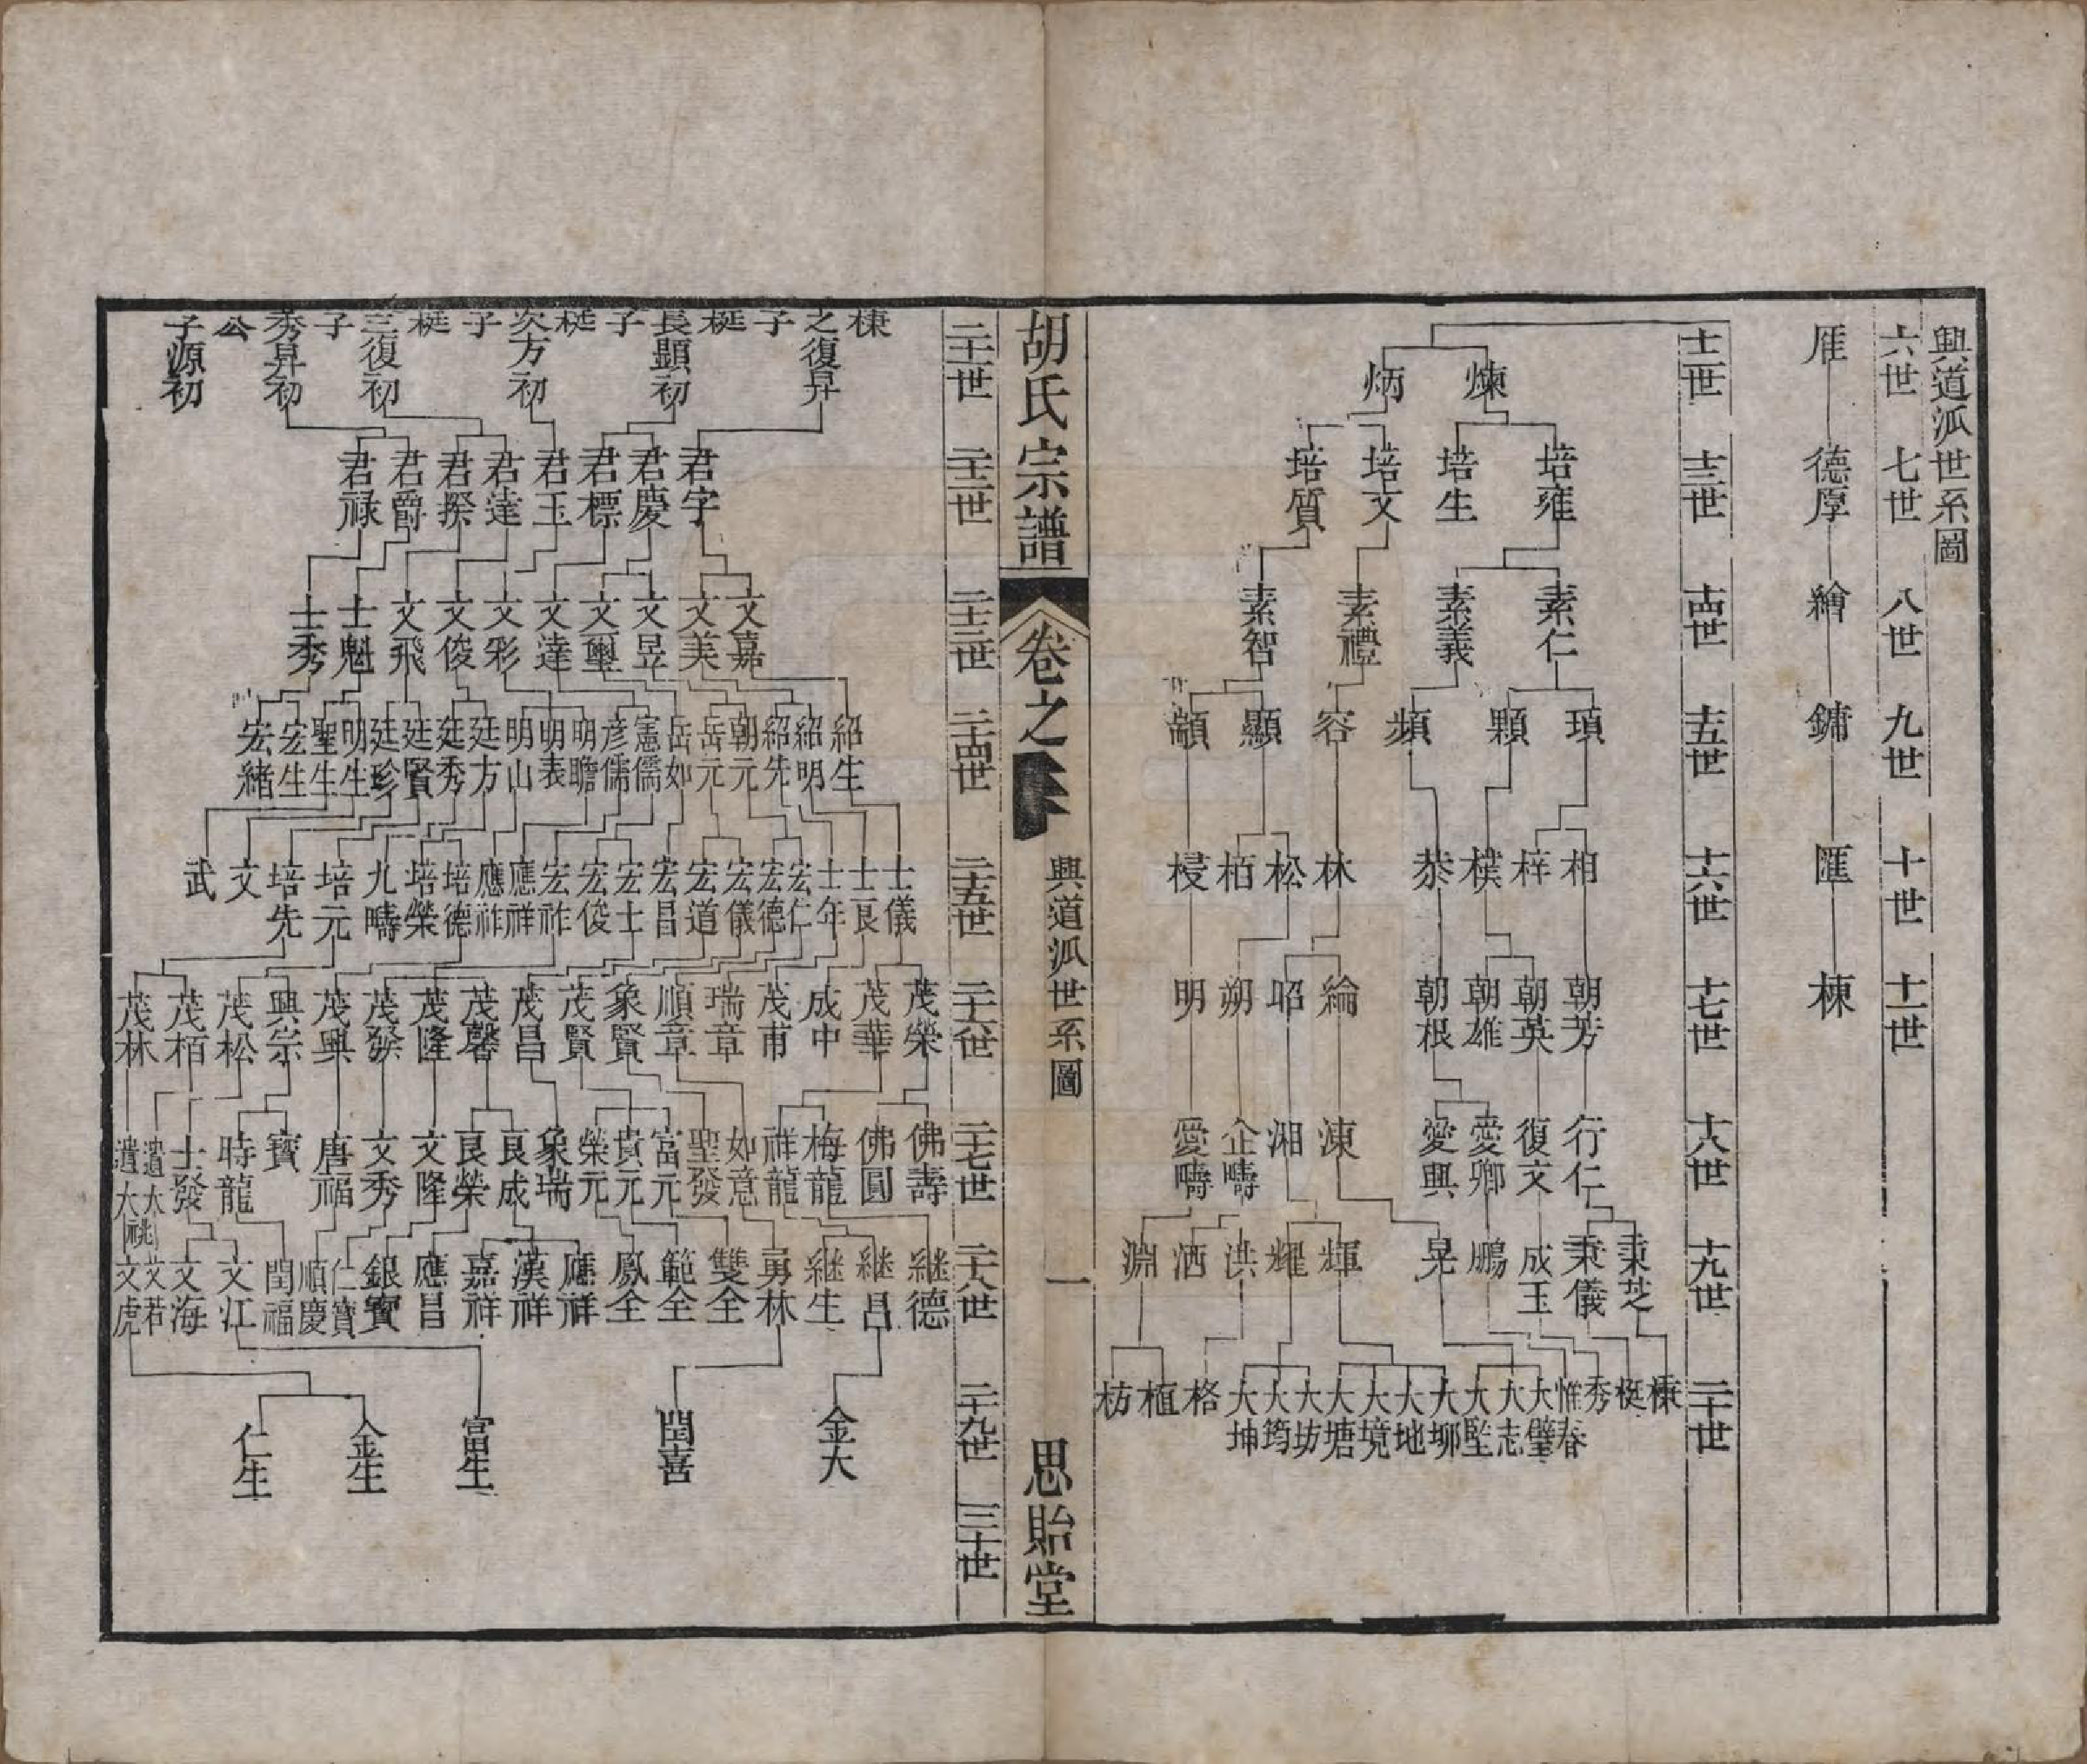 興道派世系圖
六世 七世 八世 九世 十世 十一世
厓 德厚 繪 鏞 匯 棟
十二世 十三世 十四世 十五世 十六世 十七世 十八世 十九世 二十世
煉 炳
培雍 培生 培文 培質
素仁 素義 素禮 素智
頊 顆 頻 容 顯 顓
相 梓 樸 恭 林 松 栢 梫
朝芳 朝英 朝雄 朝根 綸 昭 朔 明
行仁 復文 愛卿 愛興 涷 湘 企疇 愛疇
秉芝 秉儀 成玉 鵬 晃 輝 耀 洪 洒 淵
槺 梃 秀 惟春 大璧 大志 大堅 大堋 大地 大境 大塘 大坊 大筠 大坤 格 植 枋
胡氏宗譜 卷之 興道派世系圖 一 思貽堂
二十一世 二十二世 二十三世 二十四世 二十五世 二十六世 二十七世 二十八世 二十九世 三十世
槺之子復昇 梃長子顯初 梃次子方初 梃三子復初 秀子昇初 公子源初
君字 君慶 君標 君玉 君達 君揆 君爵 君祿
文嘉 文美 文昱 文璽 文達 文彩 文俊 文飛 士魁 士秀
紹生 紹明 紹先 朝元 岳元 岳如 憲儒 彦儒 明瞻 明表 明山 廷方 廷秀 廷賢 廷珍 明生 聖生 宏生 宏緒
士儀 士良 士年 宏仁 宏德 宏儀 宏道 宏昌 宏士 宏俊 宏祚 應祥 應祚 培德 培榮 九疇 培元 培先 文 武
茂榮 茂華 成中 茂甫 瑞章 順章 象賢 茂賢 茂昌 茂馨 茂隆 茂發 茂興 興宗 茂松 茂栢 茂林
佛壽 佛圓 梅龍 祥龍 如意 聖發 富元 貴元 榮元 象瑞 良成 良榮 文隆 文秀 唐福 寶 時龍 士發 遺大 遺大 祧
继德 継昌 継生 勇林 雙全 範全 鳳全 應祥 漢祥 嘉祥 應昌 銀寶 仁寶 順慶 閏福 文江 文海 文若 文虎
金大 閏喜 富生 金生 仁生